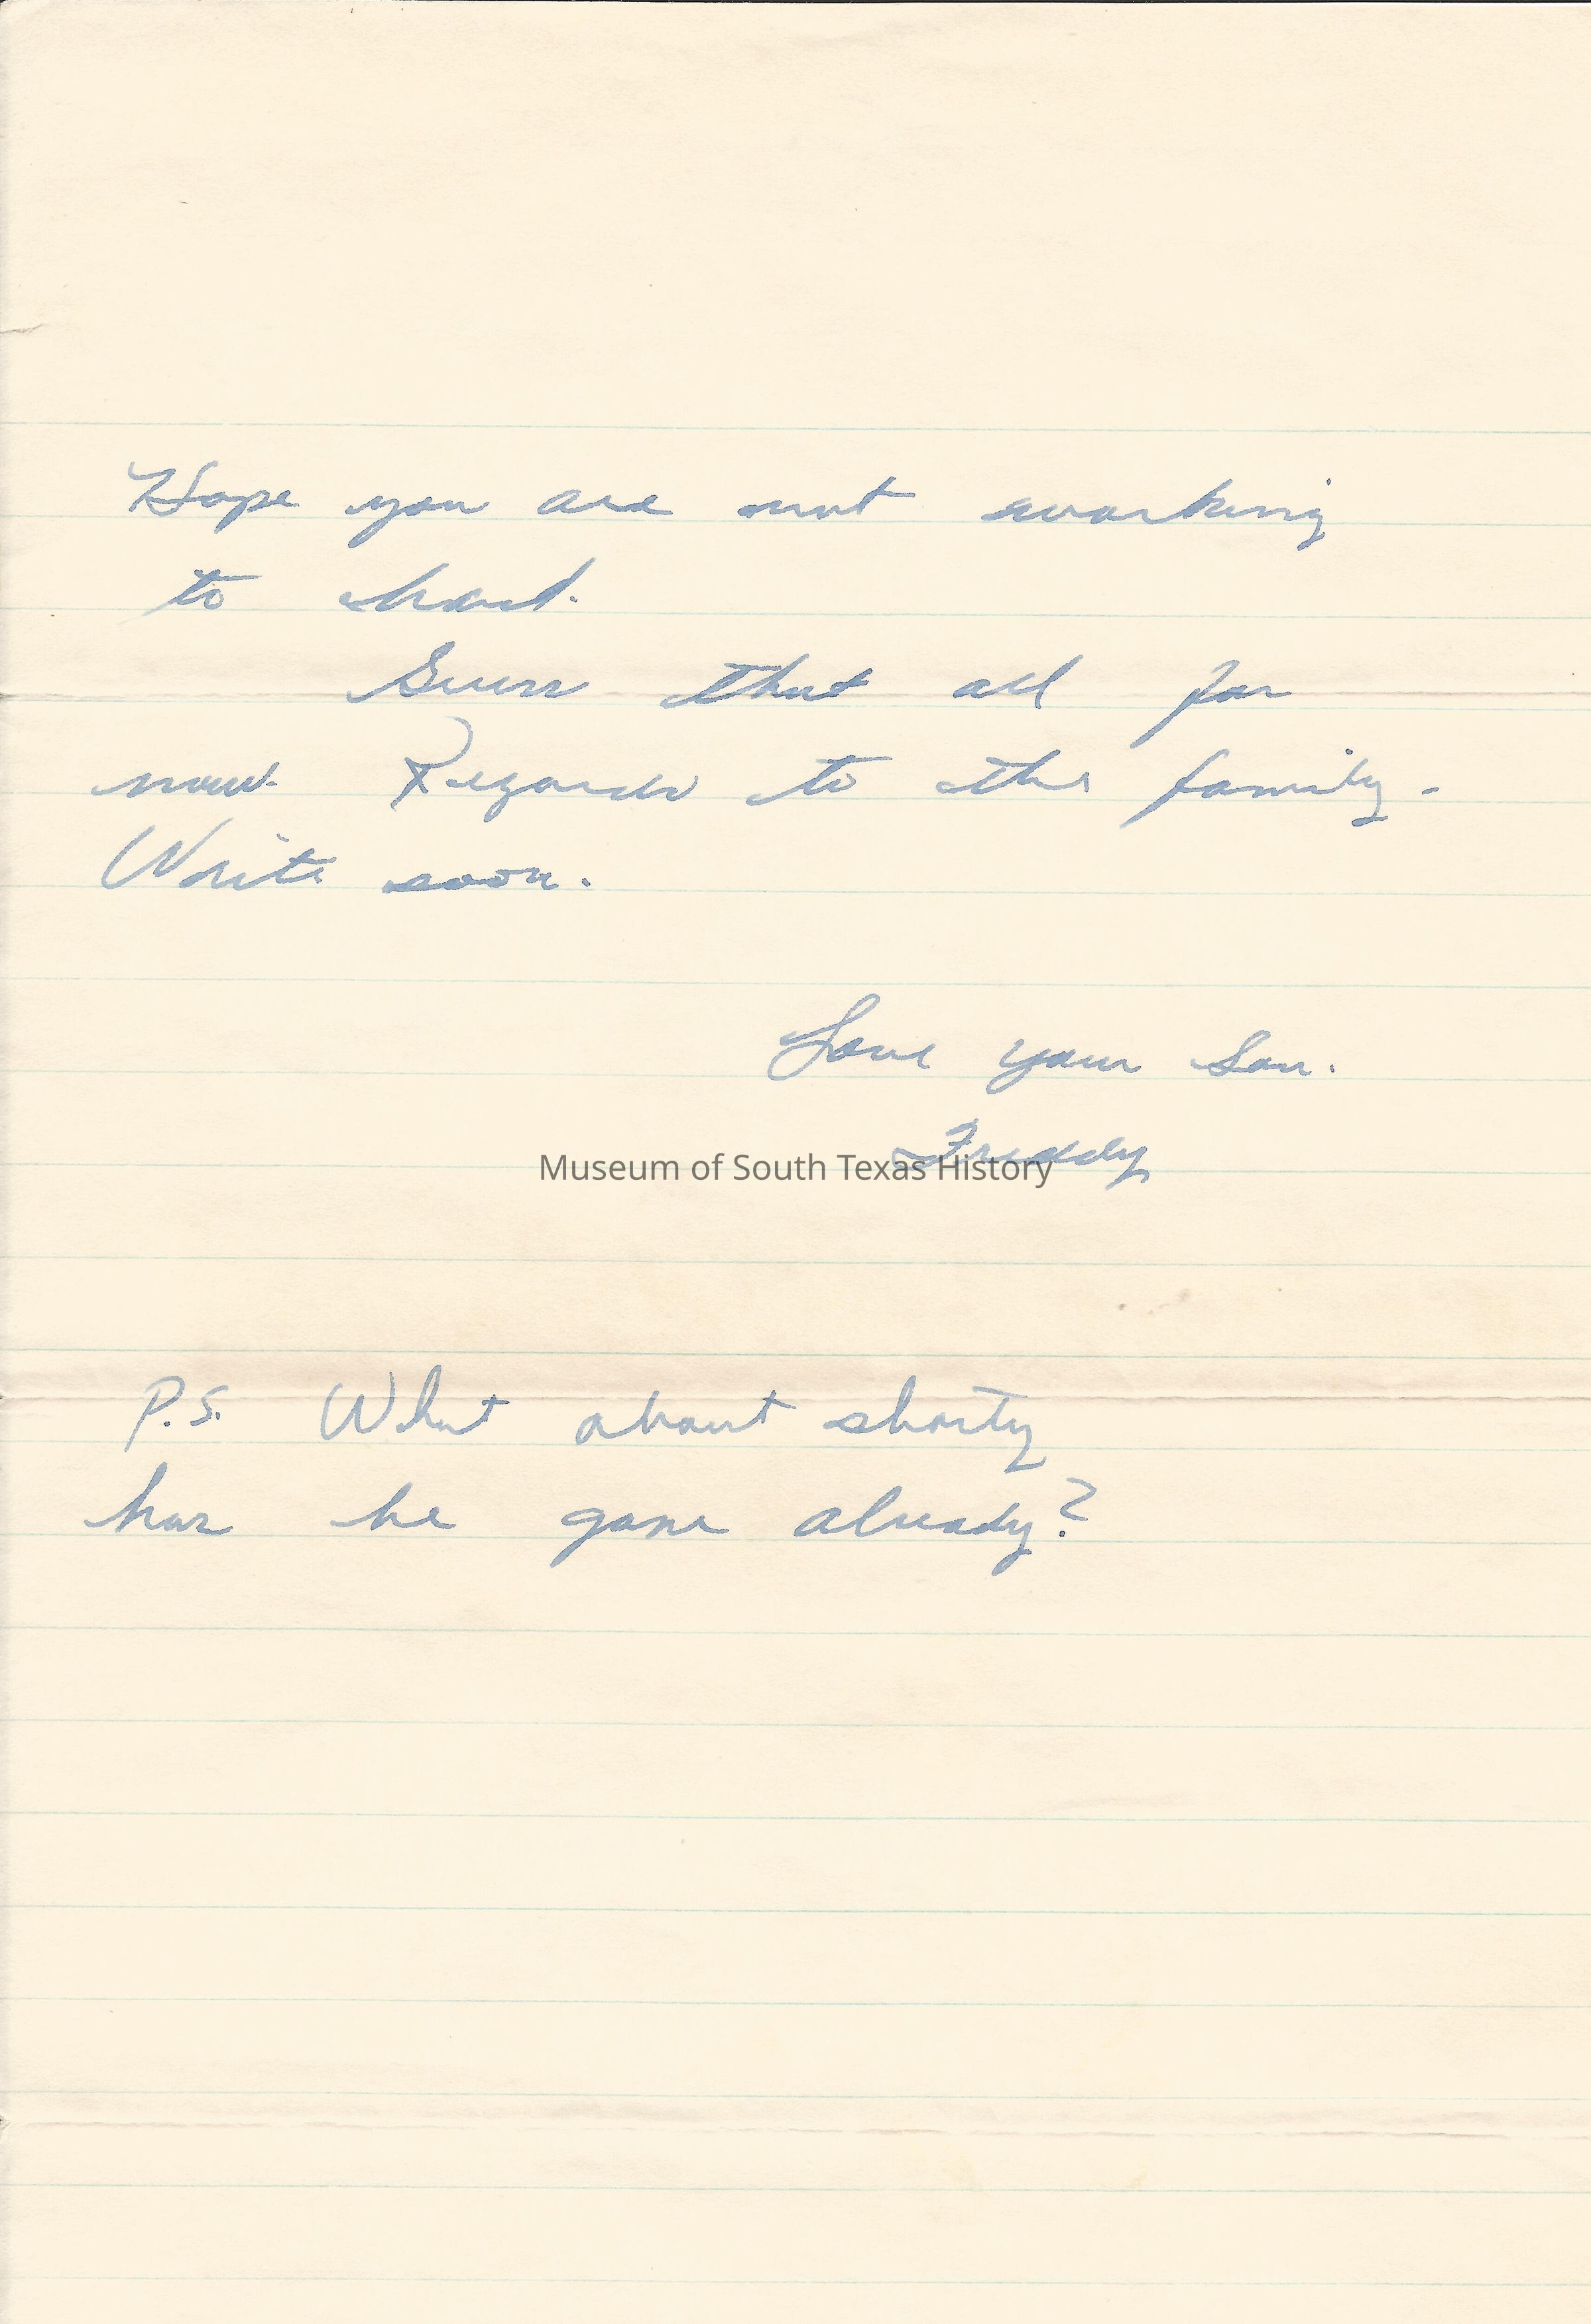 Hope you are not working
to hard.
Guess that all for
now. Regards to the family.
Write soon.
Love your Son.
Freddy
Museum of South Texas History
P.S. What about shorty
has he gone already?